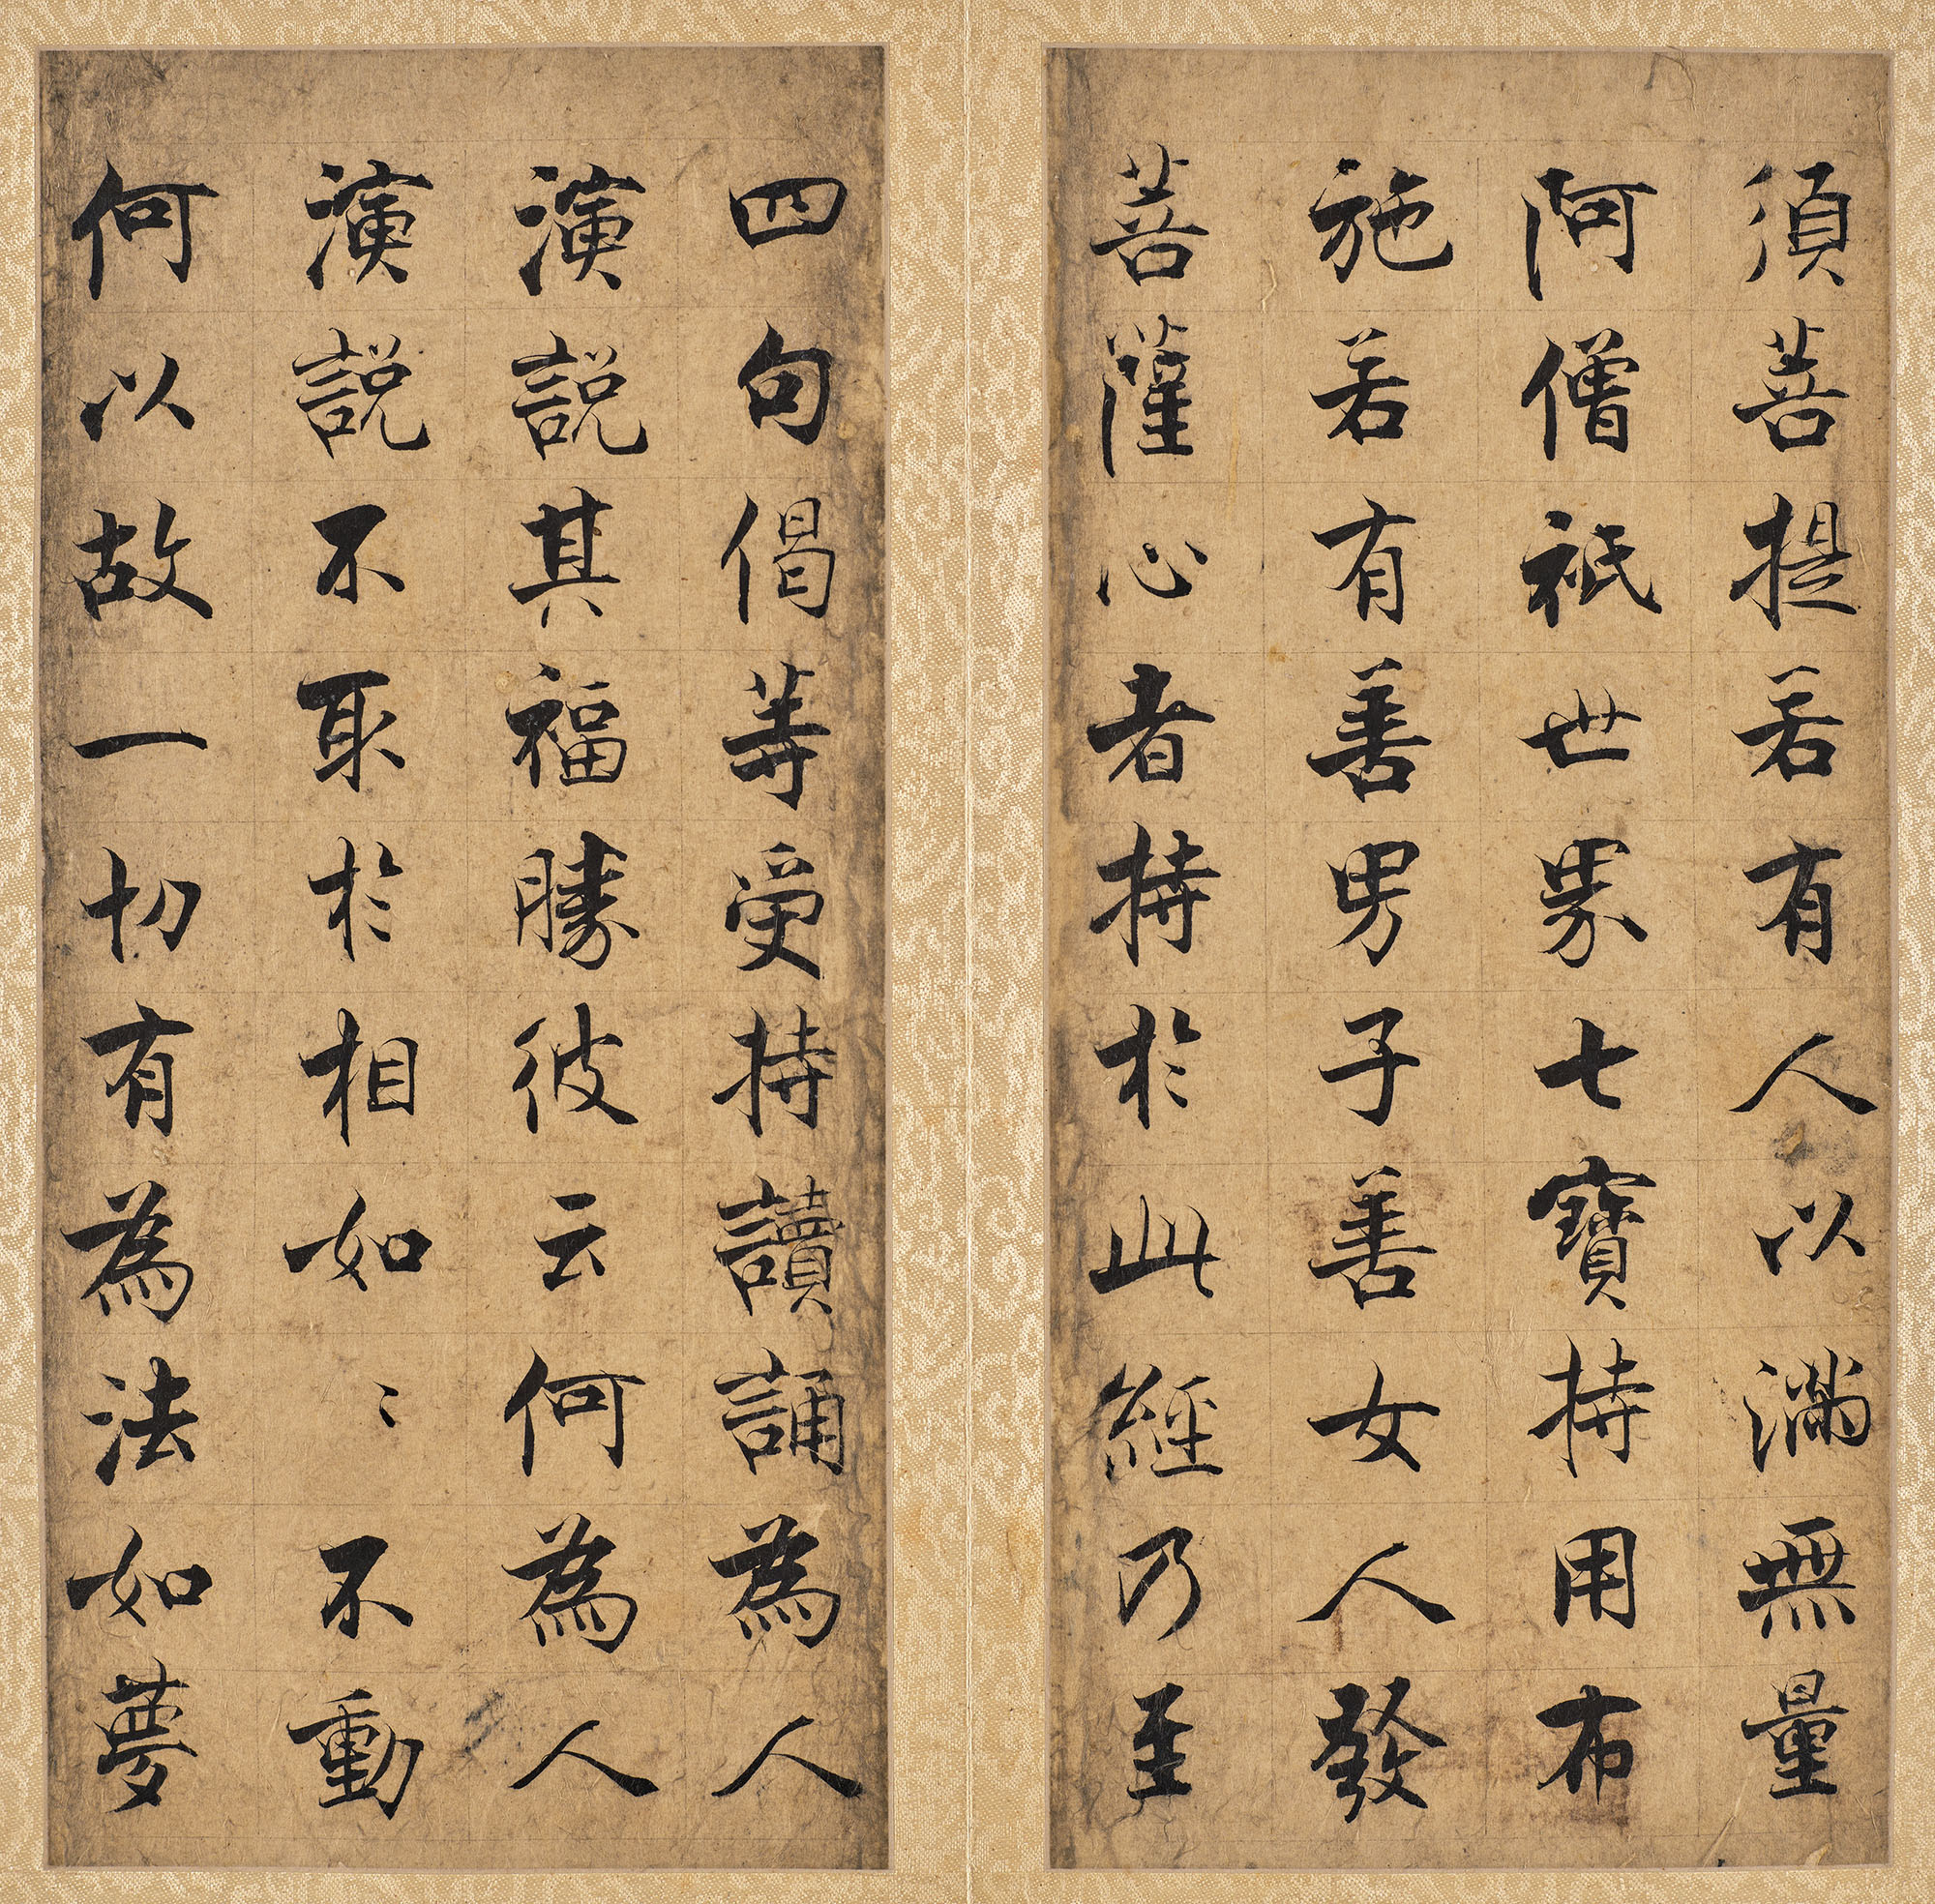 須菩提若有人以滿無量
阿僧祇世界七寶持用布
施若有善男子善女人發
菩薩心者持於此經乃至
四句偈等受持讀誦為人
演說其福勝彼云何為人
演說不取於相如〻不動
何以故一切有為法如夢